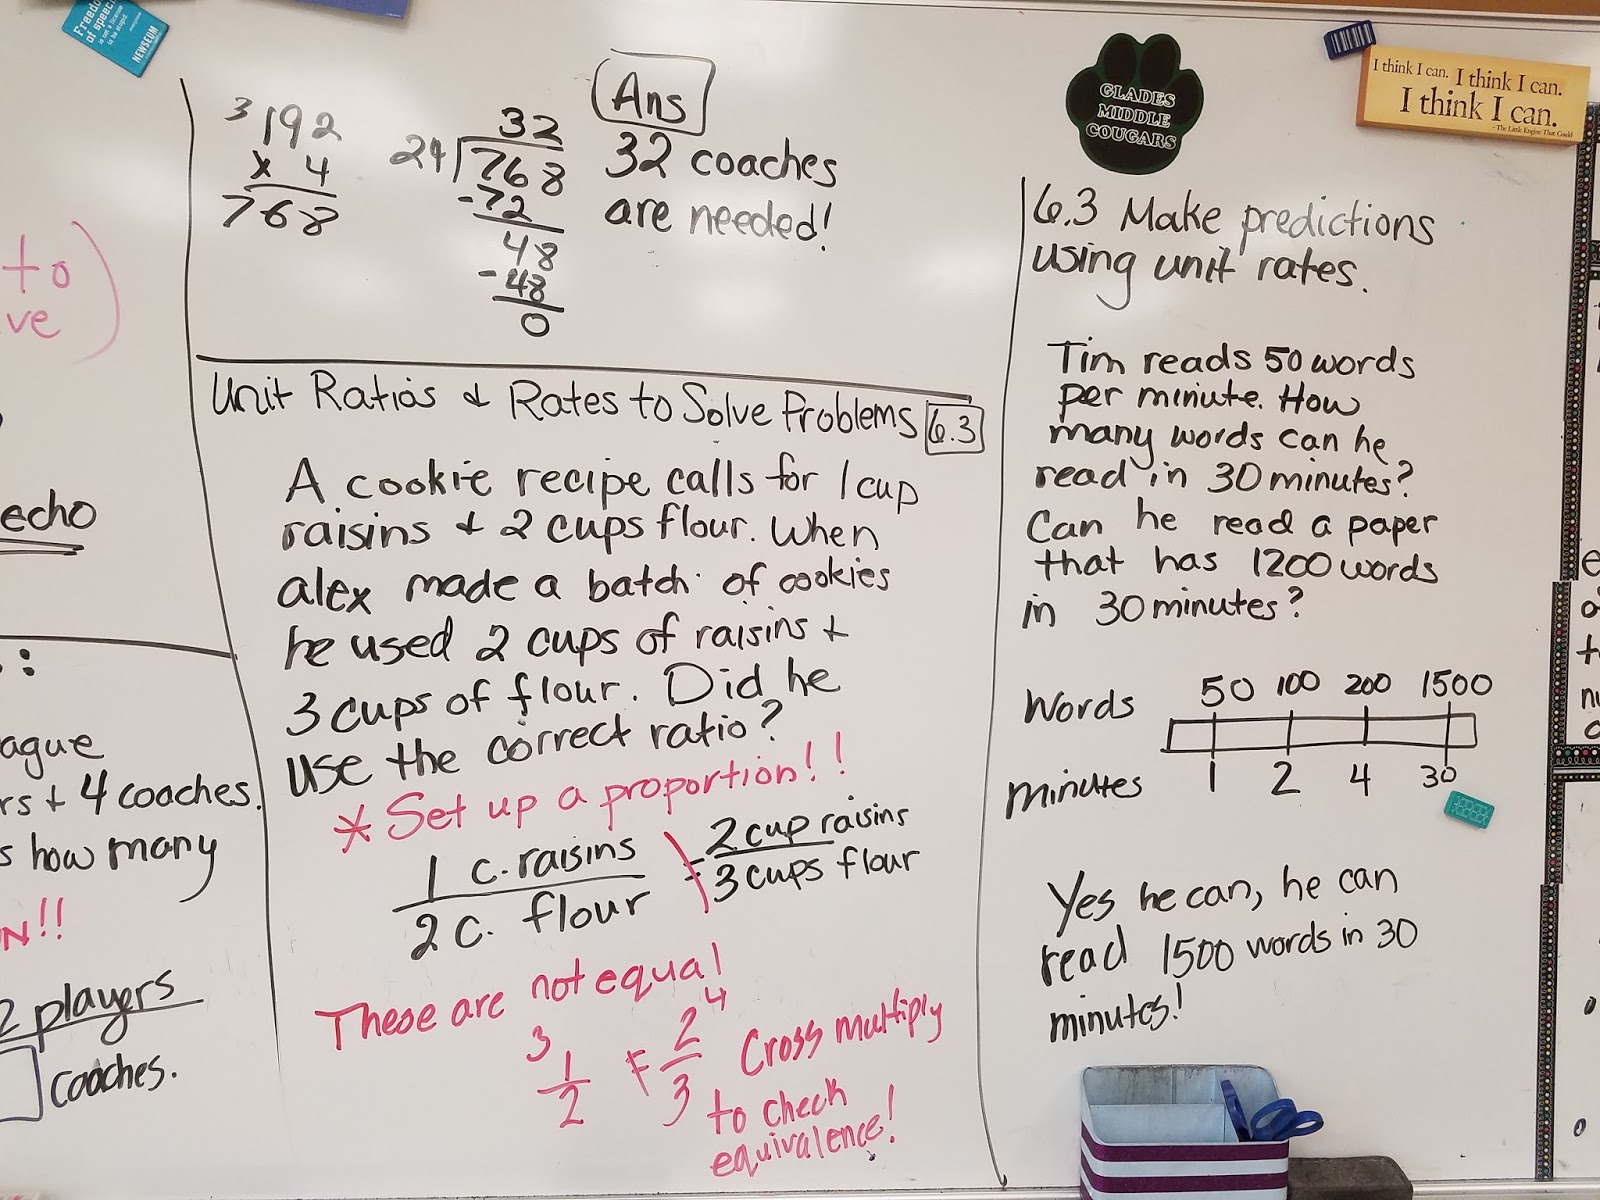 Freedom
of speech
NEWSEUM
to
ve)
echo
:
ague
rs + 4 coaches.
s how many
N!!
2 players
coaches.
3
192
x 4
768
32
24 768
-72
48
-48
0
Ans
32 coaches
are needed!
Unit Ratios & Rates to Solve Problems 6.3
A cookie recipe calls for 1 cup
raisins + 2 cups flour. When
alex made a batch of cookies
he used 2 cups of raisins +
3 cups of flour. Did he
use the correct ratio?
* Set up a proportion!!
1 c. raisins = 2 cup raisins
2 c. flour 3 cups flour
These are not equal
3 1 ≠ 2 4
2 3
Cross multiply
to check
equivalence!
GLADES
MIDDLE
COUGARS
I think I can. I think I can.
I think I can.
- The Little Engine That Could
6.3 Make predictions
using unit rates.
Tim reads 50 words
per minute. How
many words can he
read in 30 minutes?
Can he read a paper
that has 1200 words
in 30 minutes?
Words 50 100 200 1500
minutes 1 2 4 30
Yes he can, he can
read 1500 words in 30
minutes!